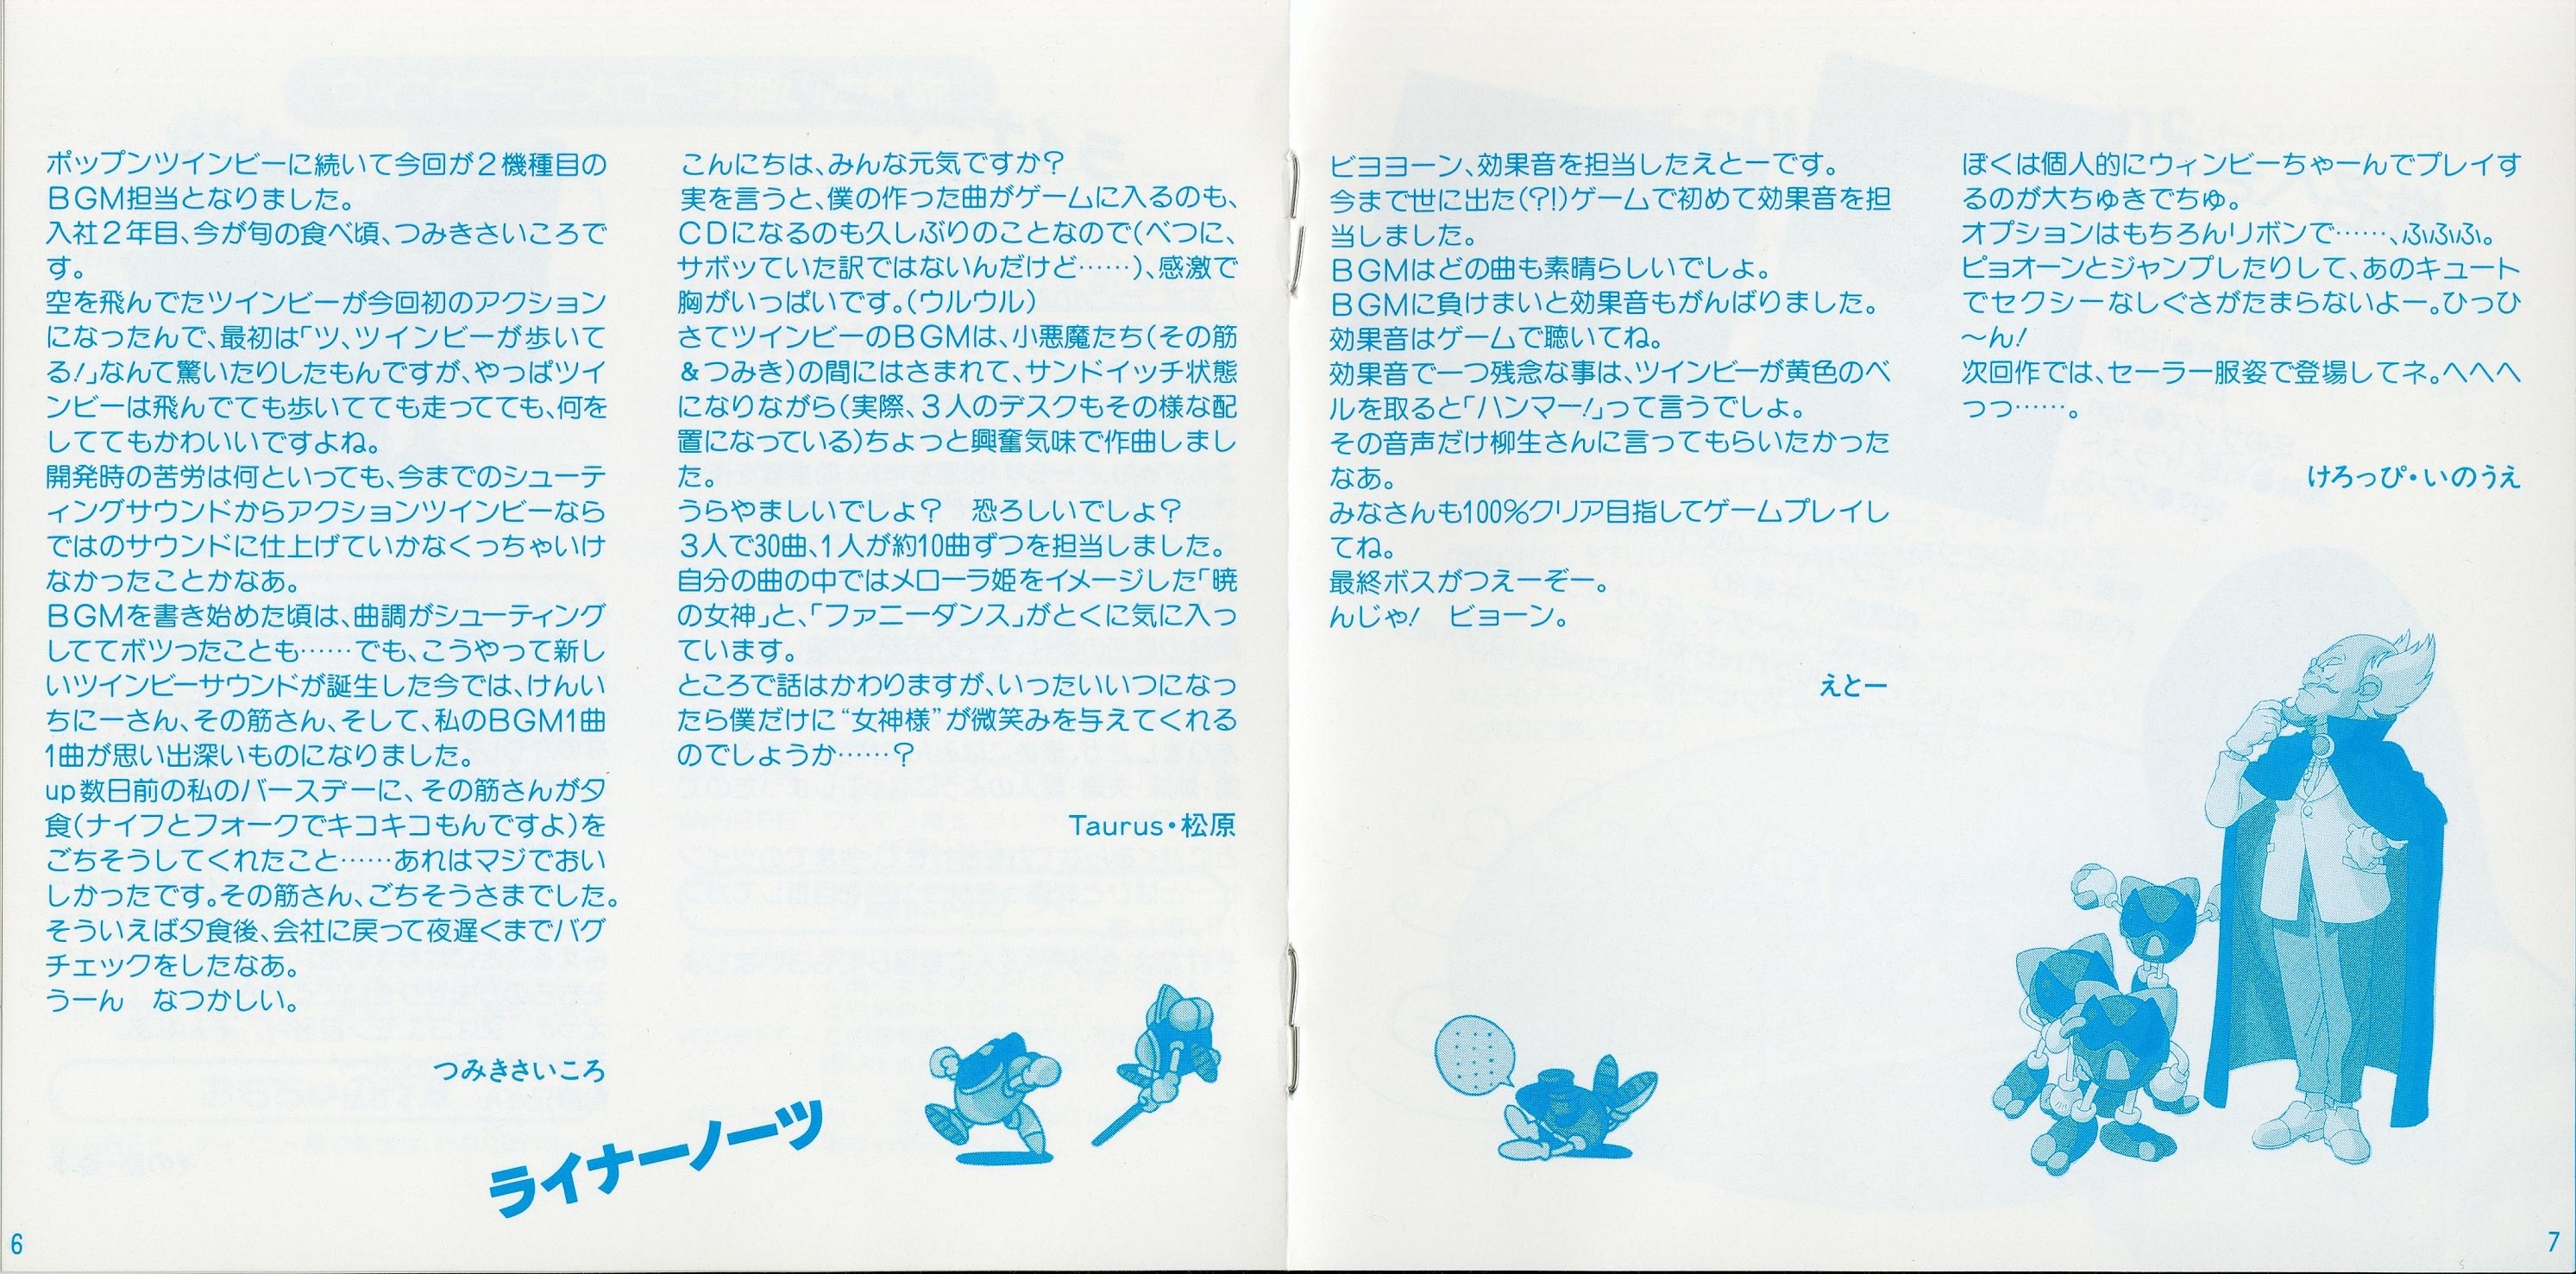 ポップンツインビーに続いて今回が2機種目の
BGM担当となりました。
入社2年目、今が旬の食べ頃、つみきさいころで
す。
空を飛んでたツインビーが今回初のアクション
になったんで、最初は「ツ、ツインビーが歩いて
る!」なんて驚いたりしたもんですが、やっぱツイ
ンビーは飛んでても歩いてても走ってても、何を
しててもかわいいですよね。
開発時の苦労は何といっても、今までのシューテ
ィングサウンドからアクションツインビーなら
ではのサウンドに仕上げていかなくっちゃいけ
なかったことかなあ。
BGMを書き始めた頃は、曲調がシューティング
しててボツったことも……でも、こうやって新し
いツインビーサウンドが誕生した今では、けんい
ちにーさん、その筋さん、そして、私のBGM1曲
1曲が思い出深いものになりました。
up数日前の私のバースデーに、その筋さんが夕
食(ナイフとフォークでキコキコもんですよ)を
ごちそうしてくれたこと……あれはマジでおい
しかったです。その筋さん、ごちそうさまでした。
そういえば夕食後、会社に戻って夜遅くまでバグ
チェックをしたなあ。
うーん　なつかしい。
つみきさいころ
こんにちは、みんな元気ですか?
実を言うと、僕の作った曲がゲームに入るのも、
CDになるのも久しぶりのことなので(べつに、
サボッていた訳ではないんだけど……)、感激で
胸がいっぱいです。(ウルウル)
さてツインビーのBGMは、小悪魔たち(その筋
&つみき)の間にはさまれて、サンドイッチ状態
になりながら(実際、3人のデスクもその様な配
置になっている)ちょっと興奮気味で作曲しまし
た。
うらやましいでしょ?　恐ろしいでしょ?
3人で30曲、1人が約10曲ずつを担当しました。
自分の曲の中ではメローラ姫をイメージした「暁
の女神」と、「ファニーダンス」がとくに気に入っ
ています。
ところで話はかわりますが、いったいいつになっ
たら僕だけに“女神様”が微笑みを与えてくれる
のでしょうか……?
Taurus・松原
ライナーノーツ
6
ビヨヨーン、効果音を担当したえとーです。
今まで世に出た(?!)ゲームで初めて効果音を担
当しました。
BGMはどの曲も素晴らしいでしょ。
BGMに負けまいと効果音もがんばりました。
効果音はゲームで聴いてね。
効果音で一つ残念な事は、ツインビーが黄色のベ
ルを取ると「ハンマー!」って言うでしょ。
その音声だけ柳生さんに言ってもらいたかった
なあ。
みなさんも100%クリア目指してゲームプレイし
てね。
最終ボスがつえーぞー。
んじゃ!　ビョーン。
えとー
ぼくは個人的にウィンビーちゃーんでプレイす
るのが大ちゅきでちゅ。
オプションはもちろんリボンで……、ふふふ。
ピョオーンとジャンプしたりして、あのキュート
でセクシーなしぐさがたまらないよー。ひっひ
〜ん!
次回作では、セーラー服姿で登場してネ。へへへ
っっ……。
けろっぴ・いのうえ
7